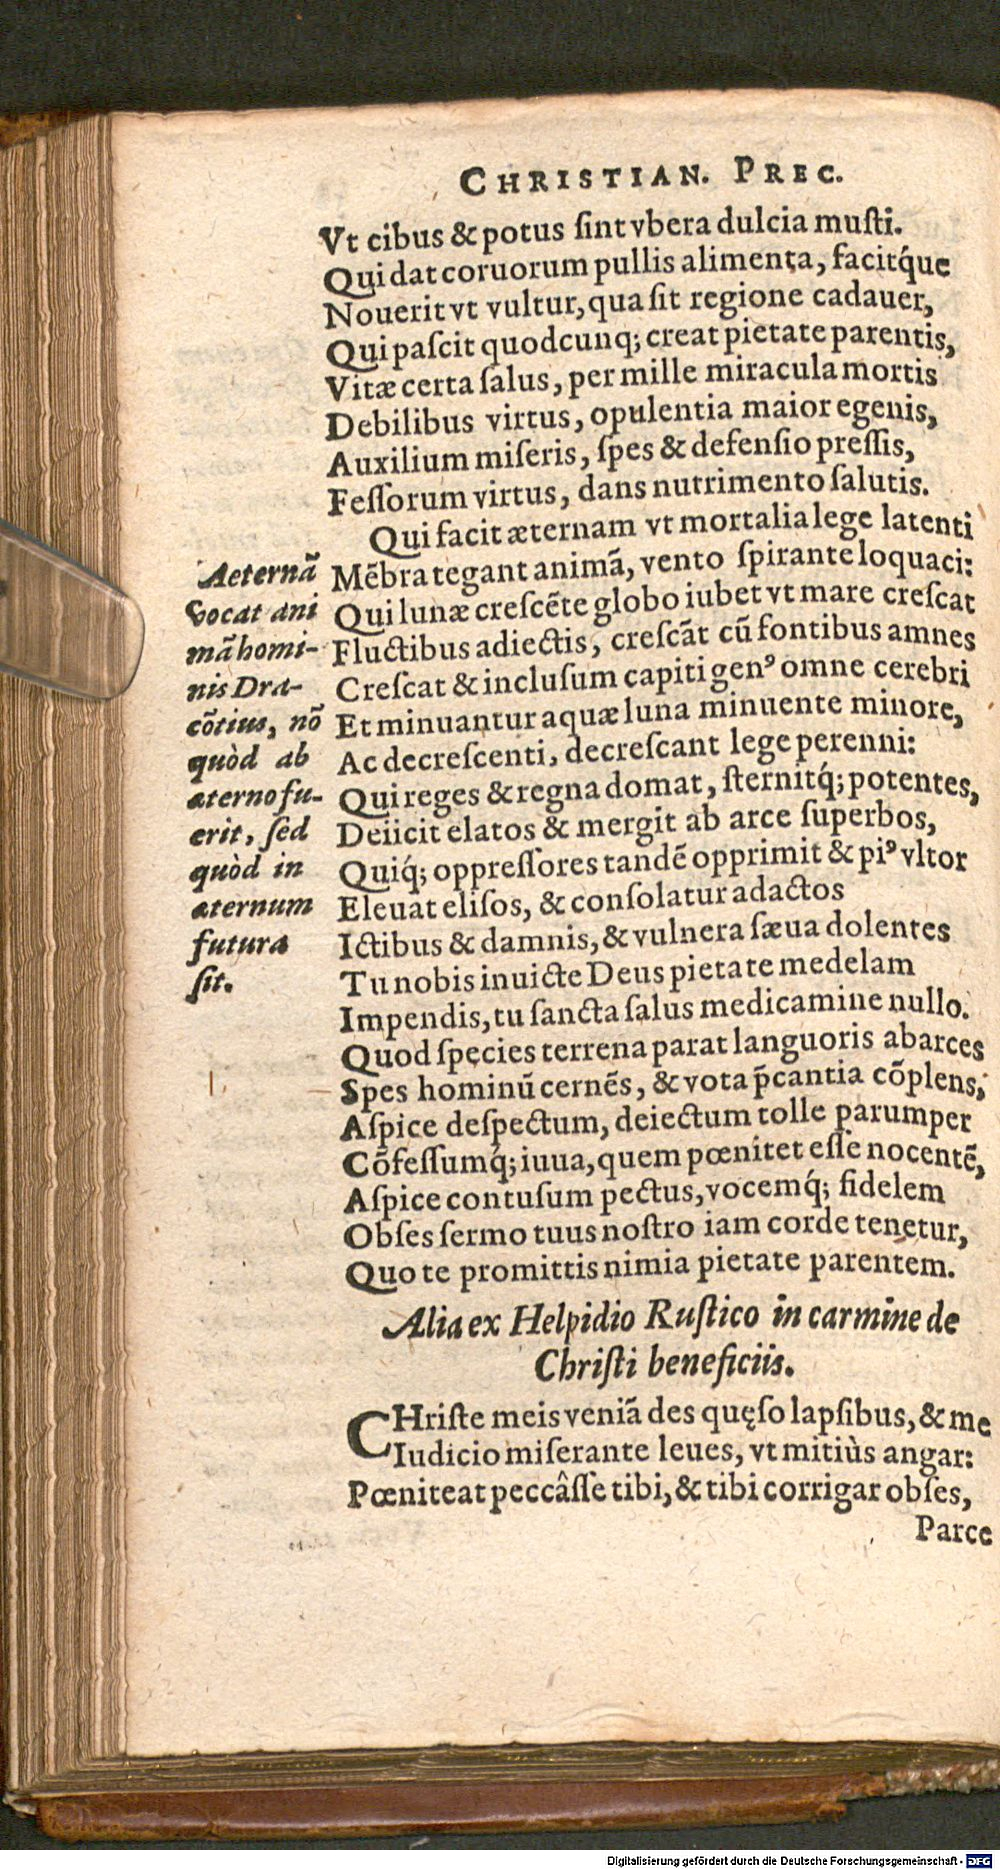 CHRISTIAN. PREC.
Vt cibus & potus ſint vbera dulcia muſti.
Qui dat coruorum pullis alimenta, facitq́ue
Nouerit vt vultur, qua ſit regione cadauer,
Qui paſcit quodcunq; creat pietate parentis,
Vitæ certa ſalus, per mille miracula mortis
Debilibus virtus, opulentia maior egenis,
Auxilium miſeris, ſpes & defenſio preſſis,
Feſſorum virtus, dans nutrimento ſalutis.
Qui facit æternam vt mortalia lege latenti
Mẽbra tegant animã, vento ſpirante loquaci:
Qui lunæ creſcẽte globo iubet vt mare creſcat
Fluctibus adiectis, creſcãt cũ fontibus amnes
Creſcat & incluſum capiti genꝰ omne cerebri
Et minuantur aquæ luna minuente minore,
Ac decreſcenti, decreſcant lege perenni:
Qui reges & regna domat, ſternitq́; potentes,
Deiicit elatos & mergit ab arce ſuperbos,
Quiq́; oppreſſores tandẽ opprimit & piꝰ vltor
Eleuat eliſos, & conſolatur adactos
Ictibus & damnis, & vulnera ſæua dolentes
Tu nobis inuicte Deus pietate medelam
Impendis, tu ſancta ſalus medicamine nullo.
Quod ſpecies terrena parat languoris abarces
Spes hominũ cernẽs, & vota p̃cantia cõplens,
Aſpice deſpectum, deiectum tolle parumper
Cõfeſſumq́; iuua, quem pœnitet eſſe nocentẽ,
Aſpice contuſum pectus, vocemq́; fidelem
Obſes ſermo tuus noſtro iam corde tenetur,
Quo te promittis nimia pietate parentem.
Aeternã
vocat ani
mã homi-
nis Dra-
cõtius, nõ
quòd ab
æterno fu-
erit, ſed
quòd in
æternum
futura
ſit.
Alia ex Helpidio Ruſtico in carmine de
Chriſti beneficiis.
CHriſte meis veniã des quęſo lapſibus, & me
Iudicio miſerante leues, vt mitiùs angar:
Pœniteat peccâſſe tibi, & tibi corrigar obſes,
Parce
Digitalisierung gefördert durch die Deutsche Forschungsgemeinschaft - DFG